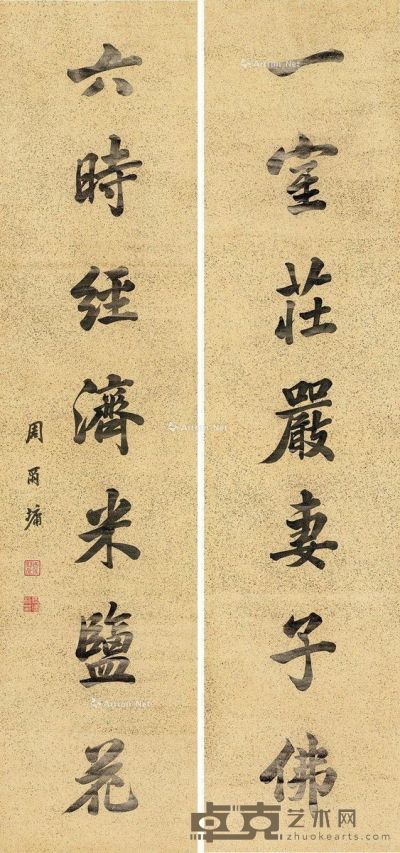 一室莊嚴妻子佛
六時經濟米鹽花
周爾墉
Artron.Net
Artron.Net
Artron.Net
Artron.Net
卓克艺术网
zhuokearts.com